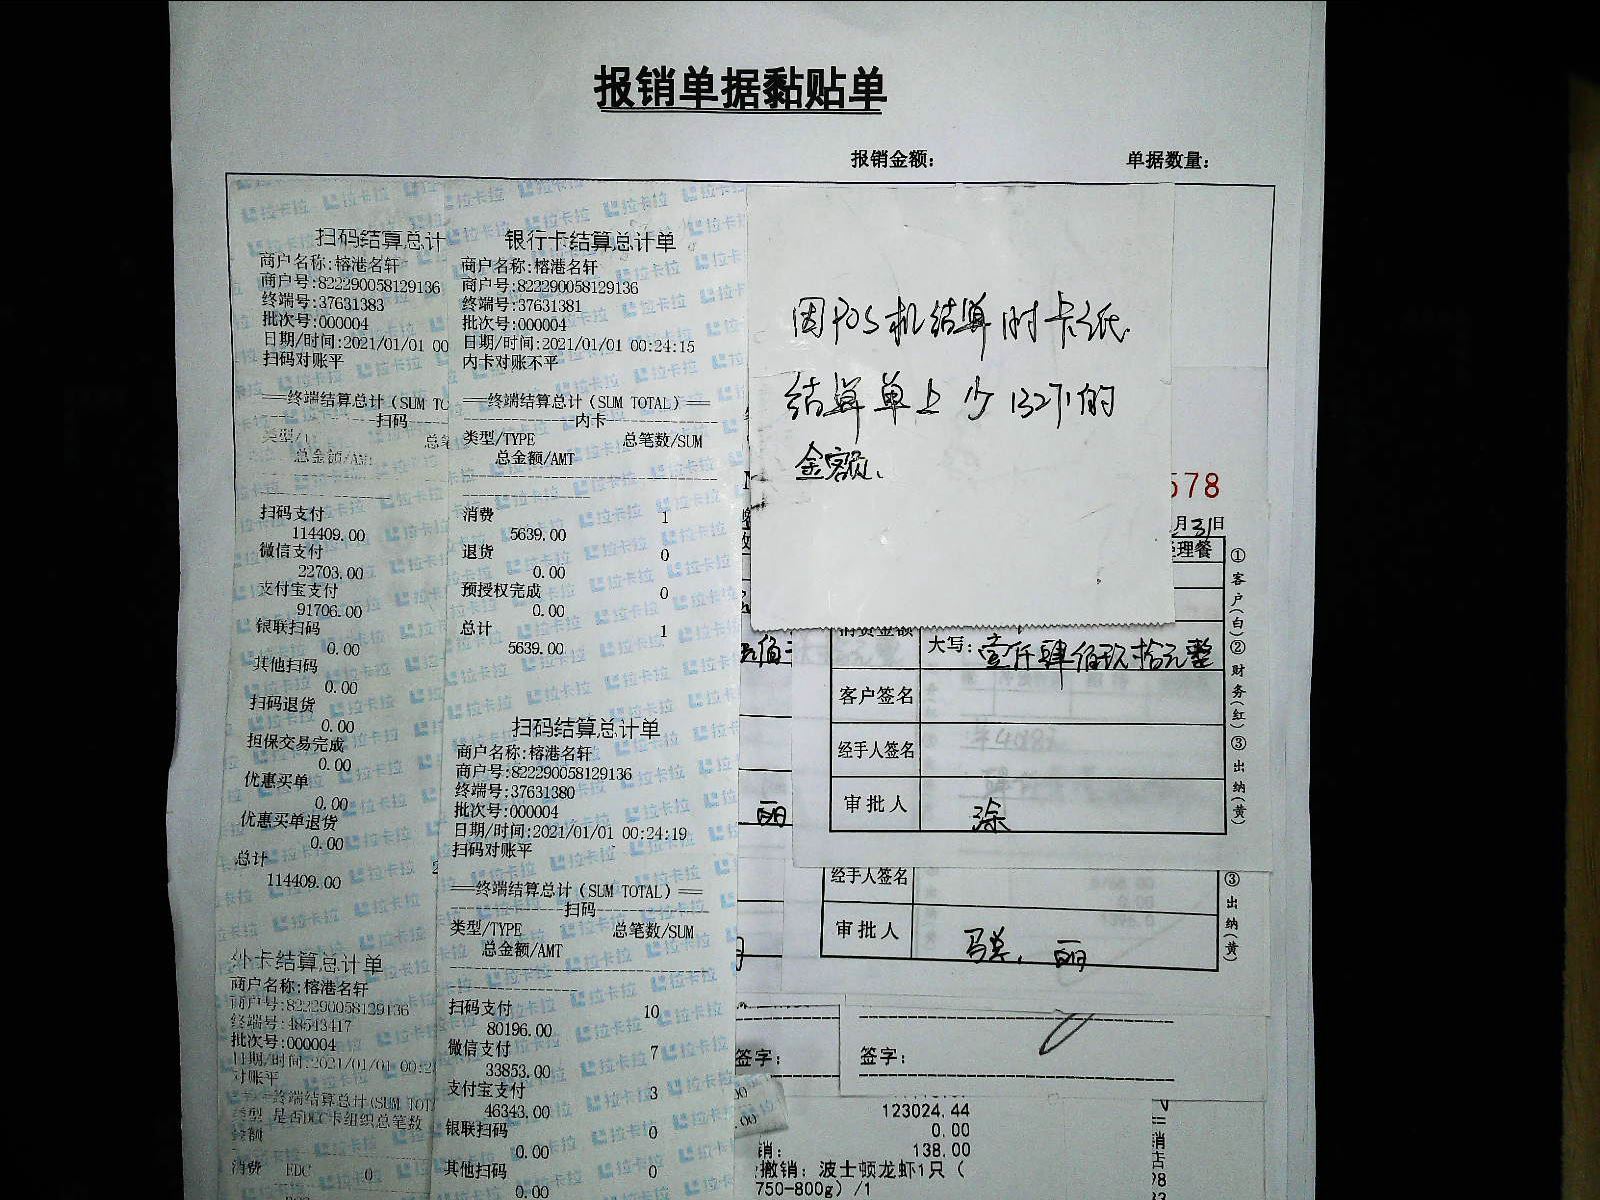 报销单据黏贴单
报销金额：
单据数量：
扫码结算总计
商户名称:榕港名轩
商户号:822290058129136
终端号:37631383
批次号:000004
日期/时间:2021/01/01 00
扫码对账平
==终端结算总计(SUM TO
扫码
类型/
总笔
总金额/AM
扫码支付
114409.00
微信支付
22703.00
支付宝支付
91706.00
银联扫码
0.00
其他扫码
0.00
扫码退货
0.00
担保交易完成
0.00
优惠买单
0.00
优惠买单退货
0.00
总计
114409.00
外卡结算总计单
商户名称:榕港名轩
商户号:822290058129136
终端号:48543417
批次号:000004
日期/时间:2021/01/01 00:2
对账平
终端结算总计(SUM TOT
类型 是否DCC卡组织总笔数
金额
消费 EDC 0
银行卡结算总计单
商户名称:榕港名轩
商户号:822290058129136
终端号:37631381
批次号:000004
日期/时间:2021/01/01 00:24:15
内卡对账不平
==终端结算总计(SUM TOTAL)==
内卡
类型/TYPE 总笔数/SUM
总金额/AMT
消费 1
5639.00
退货 0
0.00
预授权完成 0
0.00
总计 1
5639.00
扫码结算总计单
商户名称:榕港名轩
商户号:822290058129136
终端号:37631380
批次号:000004
日期/时间:2021/01/01 00:24:19
扫码对账平
==终端结算总计(SUM TOTAL)==
扫码
类型/TYPE 总笔数/SUM
总金额/AMT
扫码支付 10
80196.00
微信支付 7
33853.00
支付宝支付 3
46343.00
银联扫码 0
0.00
其他扫码 0
0.00
因POS机结算时卡纸.
结算单上少132个的
金额.
578
月31日
理餐
消费金额
大写:壹仟肆佰玖拾元整
客户签名
经手人签名
审批人
涂
①客户(白)②财务(红)③出纳(黄)
丽
经手人签名
审批人
马总. 丽
③出纳(黄)
签字:
签字:
123024.44
0.00
销: 138.00
撤销: 波士顿龙虾1只 (
750-800g) /1